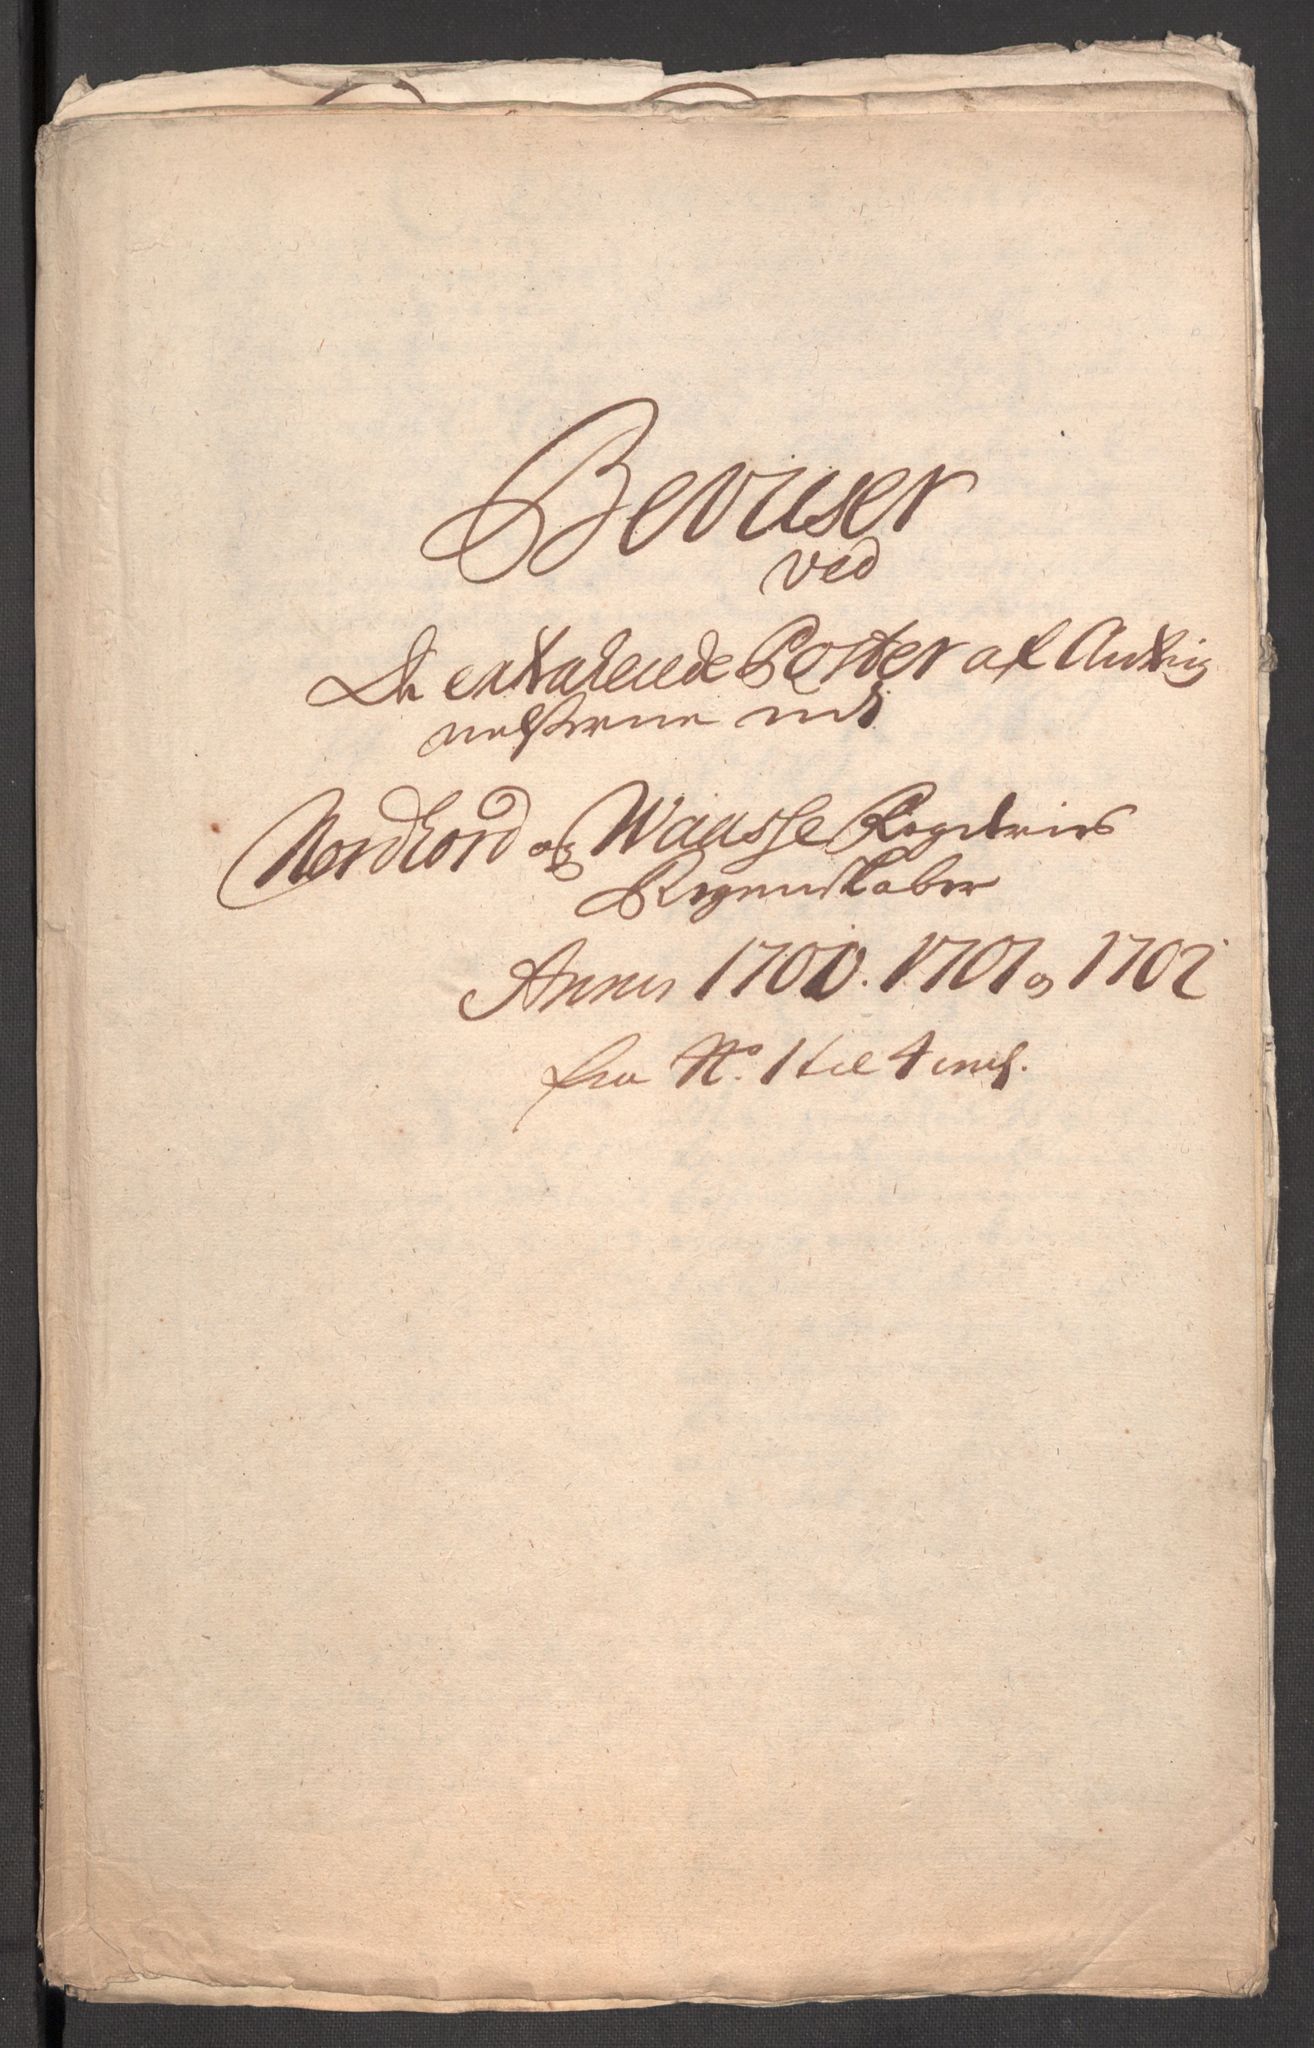 Beviiser
ved
De extraherede Poster af Anteig
nelserne ved
Nordhord og Waasse Fogderies
Regenskaber
Annis 1700. 1701 og 1702
fra No. 1 til 4 incl.